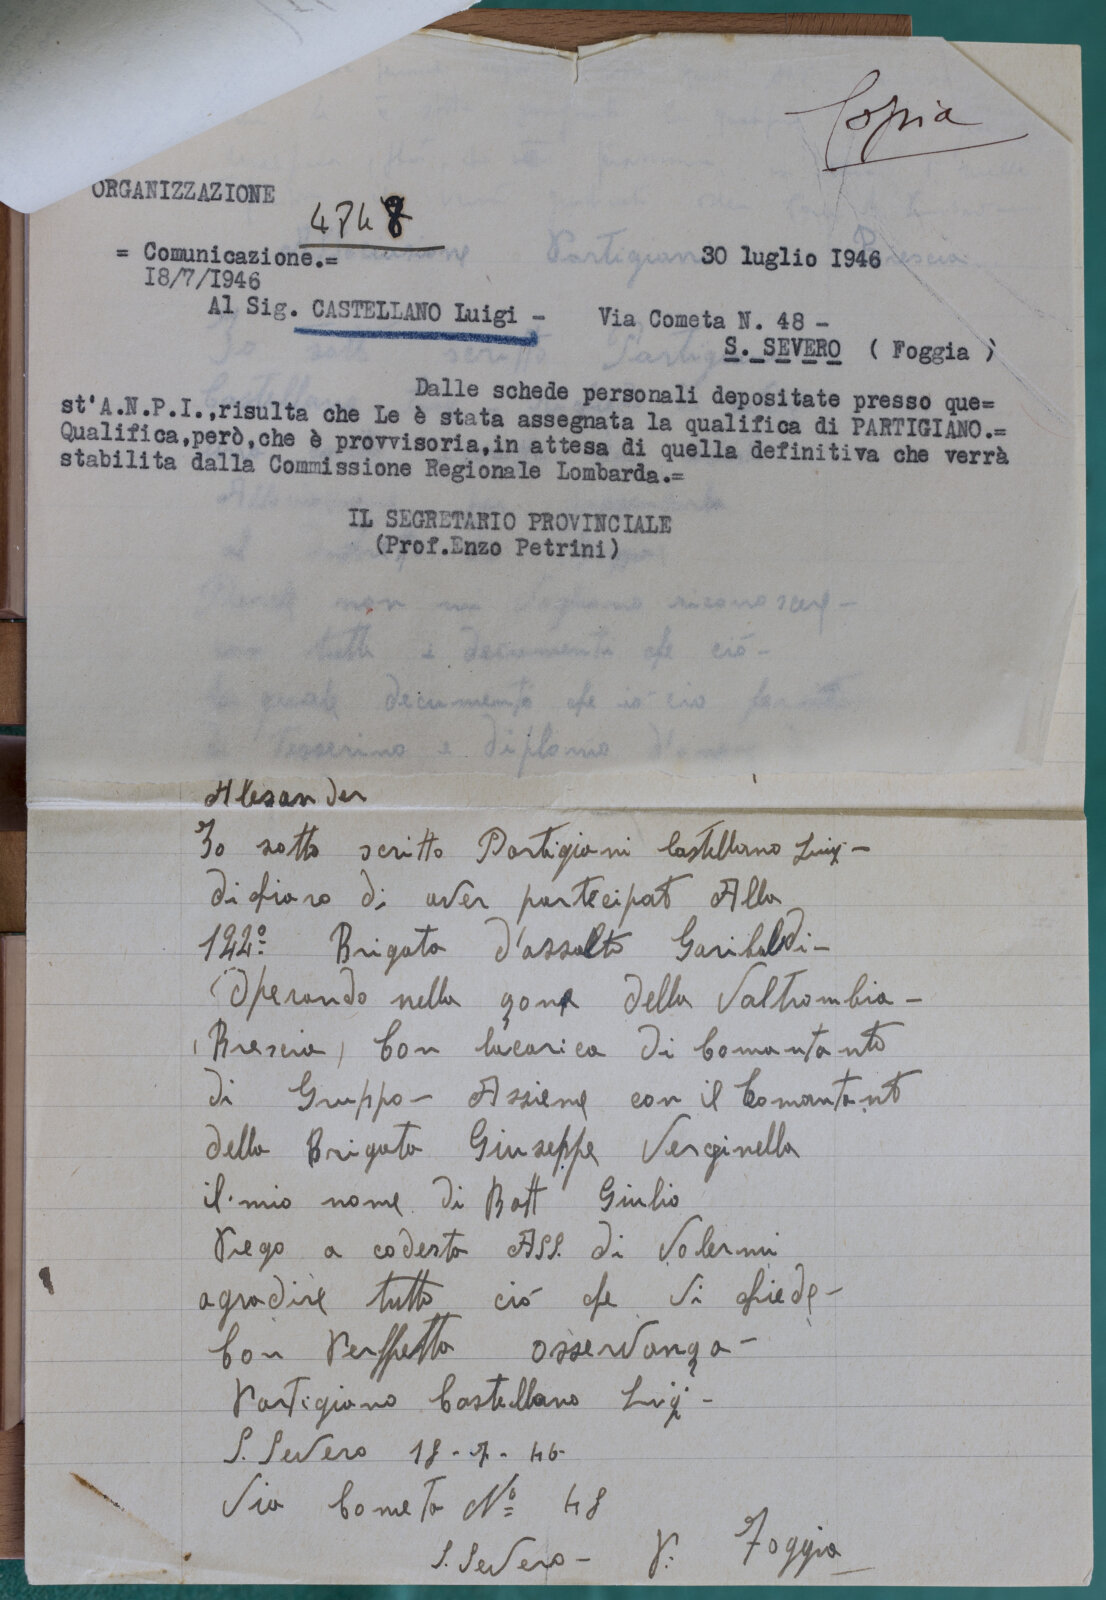 Copia
ORGANIZZAZIONE
4748
= Comunicazione.= 30 luglio I946
I8/7/I946
Al Sig. CASTELLANO Luigi - Via Cometa N. 48 -
S. SEVERO ( Foggia )
Dalle schede personali depositate presso que=
st'A.N.P.I.,risulta che Le è stata assegnata la qualifica di PARTIGIANO.=
Qualifica,però,che è provvisoria,in attesa di quella definitiva che verrà
stabilita dalla Commissione Regionale Lombarda.=
IL SEGRETARIO PROVINCIALE
(Prof.Enzo Petrini)
non mi vogliano riconoscere -
tutti i documento che ciò -
documento che io ciò
Tesserino e diploma
Alesander
Io sotto scritto Partigiani Castellano Luigi -
dichiaro di aver partecipato Alla
122º Brigata d'assalto Garibaldi -
(Operando nella zona della Valtrombia -
(Brescia) Con lacarica di Comantanto
di Gruppo - Assieme con il Comantant
della Brigata Giuseppe Verginella
il mio nome di Batt Giulio
Prego a codesta Ass. di Volermi
agradire tutto ciò che Vi chiede -
Con Perffetta osservanza -
Partigiano Castellano Luigi -
S. Severo 18 - 7 - 46
Via Cometa Nº 48
S. Severo - P: Foggia